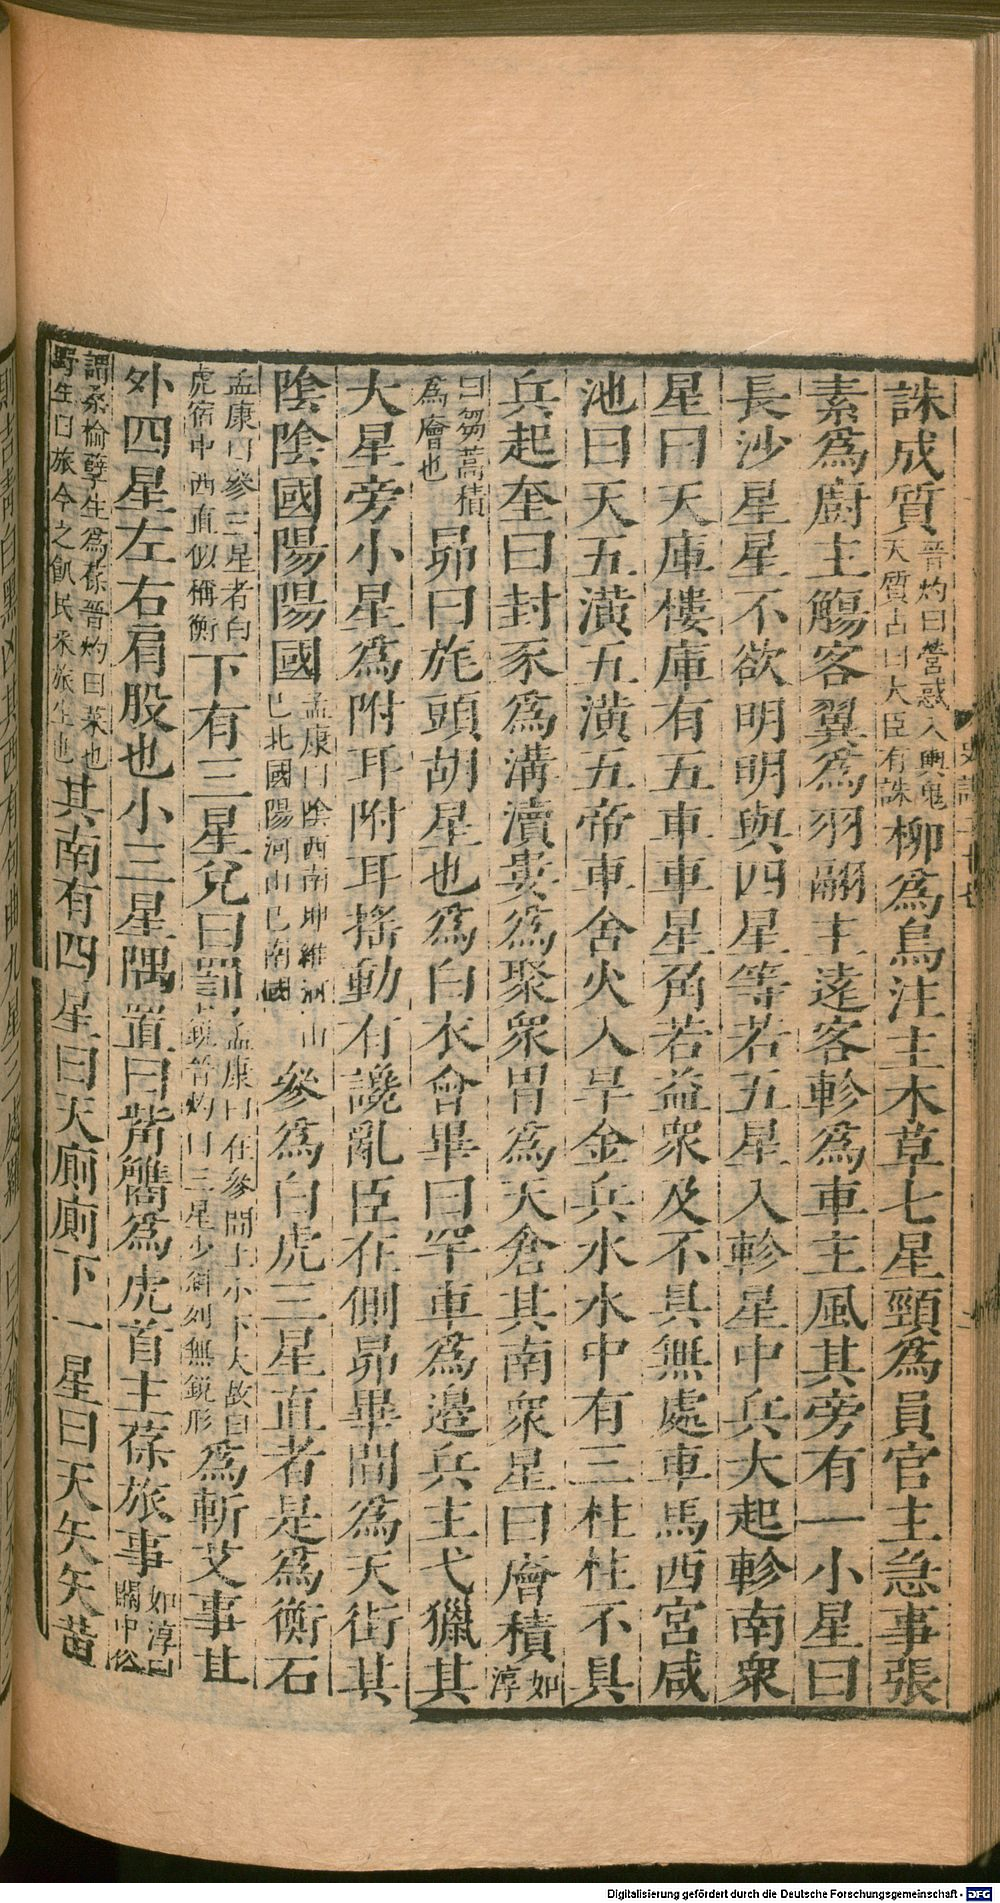 誅成質晉灼曰熒惑入輿鬼天質占曰大臣有誅柳爲鳥注主木草七星頸爲員官主急事張
素爲廚主觴客翼爲羽翮主遠客軫爲車主風其旁有一小星曰
長沙星星不欲明明與四星等若五星入軫星中兵大起軫南衆
星曰天庫樓庫有五車車星角若益衆及不具無處車馬西宮咸
池曰天五潢五潢五帝車舍火入旱金兵水水中有三柱柱不具
兵起奎曰封豕爲溝瀆婁爲聚衆胃爲天倉其南衆星曰廥積如淳
曰芻藁積爲廥也昴曰旄頭胡星也爲白衣會畢曰罕車爲邊兵主弋獵其
大星旁小星爲附耳附耳搖動有讒亂臣在側昴畢間爲天街其
陰陰國陽陽國孟康曰陰西南坤維河山已北國陽河山已南國參爲白虎三星直者是爲衡石
孟康曰參三星者白虎宿中西直似稱衡下有三星兌曰罰孟康曰在參間上小下大故曰銳晉灼曰三星少斜列無銳形爲斬艾事其
外四星左右肩股也小三星隅置曰觜觿爲虎首主葆旅事如淳曰關中俗
謂桑榆孽生爲葆晉灼曰菜也野生曰旅今之飢民采旅生也其南有四星曰天廁廁下一星曰天矢矢黃
Digitalisierung gefördert durch die Deutsche Forschungsgemeinschaft - DFG